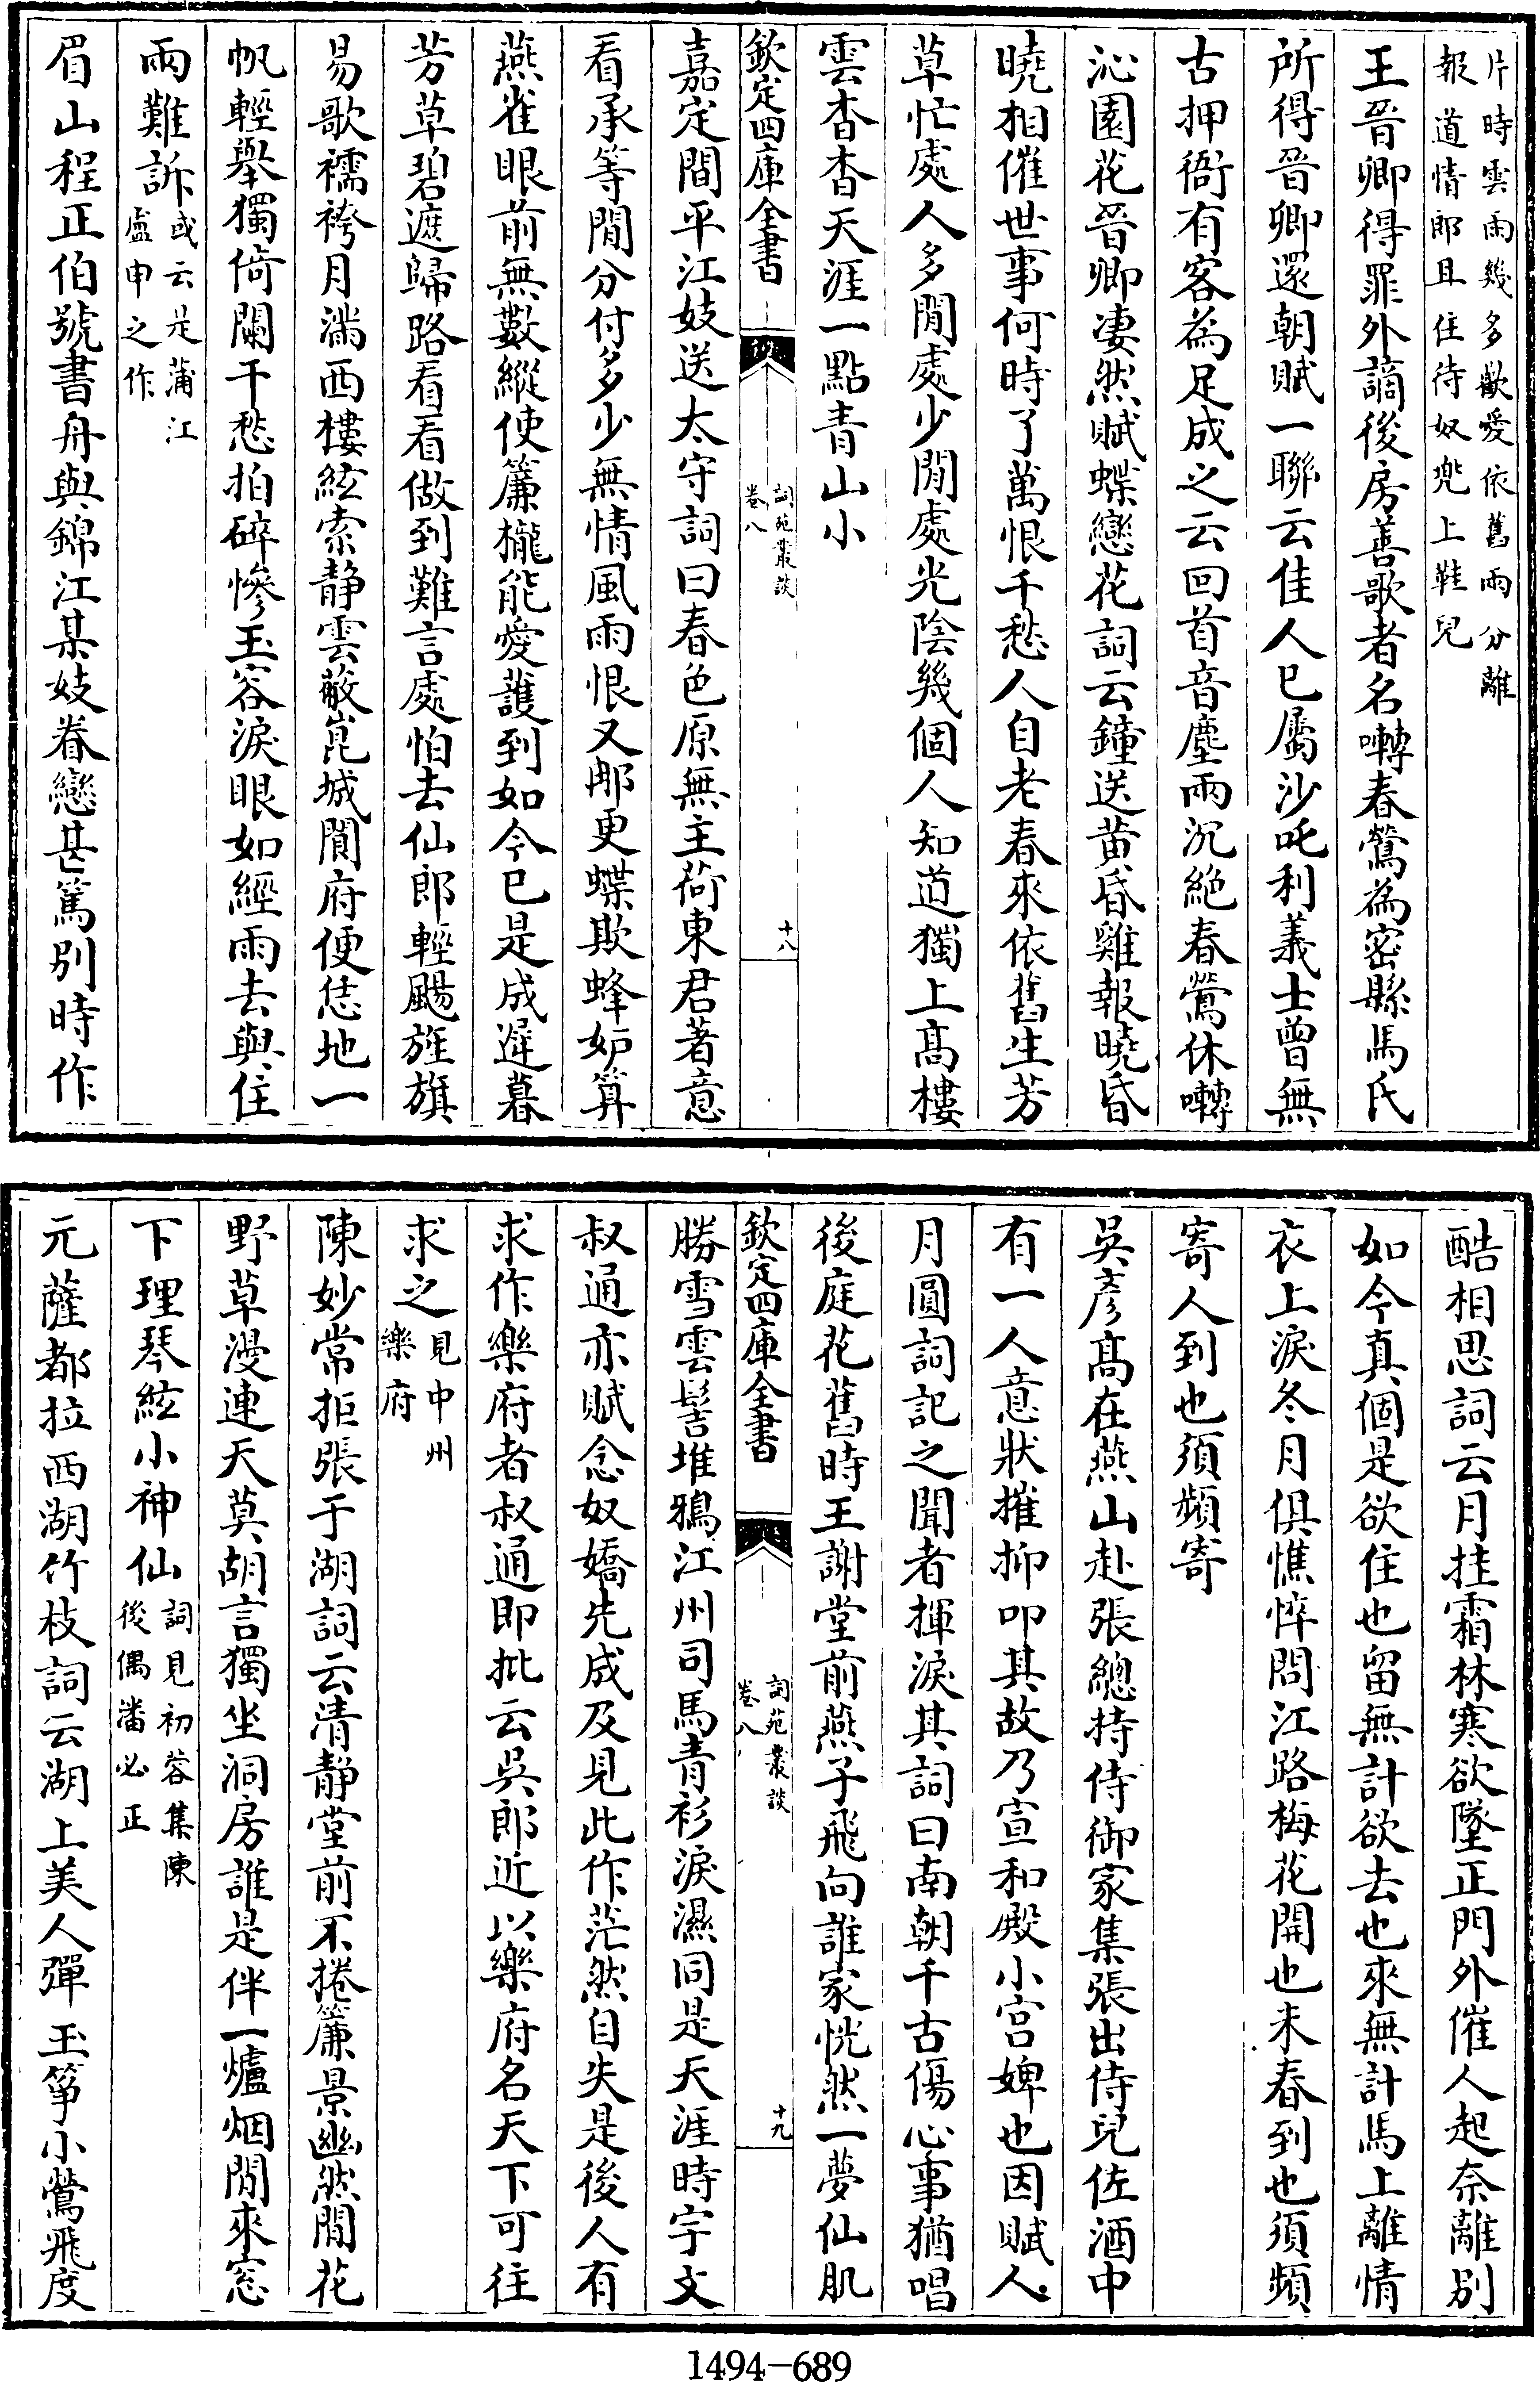 片時雲雨幾多歡愛依舊兩分離
報道情郎且住待奴兜上鞋兒
王晉卿得罪外謫後房善歌者名囀春鶯為密縣馬氏
所得晉卿還朝賦一聯云佳人已屬沙吒利義士曾無
古押衙有客為足成之云回首音塵兩沉絶春鶯休囀
沁園花晉卿凄然賦蝶戀花詞云鐘送黄昏雞報曉昏
曉相催世事何時了萬恨千愁人自老春來依舊生芳
草忙處人多閒處少閒處光陰幾個人知道獨上髙樓
雲杳杳天涯一點青山小
欽定四庫全書
詞苑叢談
卷八
十八
嘉定間平江妓送太守詞曰春色原無主荷東君著意
看承等閒分付多少無情風雨恨又那更蝶欺蜂妒算
燕雀眼前無數縱使簾櫳能愛護到如今已是成遲暮
芳草碧遮歸路看看做到難言處怕去仙郎輕颺旌旗
易歌襦袴月滿西樓絃索静雲蔽崑城閬府便恁地一
帆輕舉獨倚闌干愁拍碎慘玉容淚眼如經雨去與住
兩難訴或云是蒲江
盧申之作
眉山程正伯號書舟與錦江某妓眷戀甚篤别時作
酷相思詞云月挂霜林寒欲墜正門外催人起奈離别
如今真個是欲住也留無計欲去也來無計馬上離情
衣上淚冬月俱憔悴問江路梅花開也未春到也須頻
寄人到也須頻寄
吳彥髙在燕山赴張總持侍御家集張出侍兒佐酒中
有一人意狀摧抑叩其故乃宣和殿小宫婢也因賦人
月圓詞記之聞者揮淚其詞曰南朝千古傷心事猶唱
後庭花舊時王謝堂前燕子飛向誰家恍然一夢仙肌
欽定四庫全書
詞苑叢談
卷八
十九
勝雪雲髻堆鴉江州司馬青衫淚濕同是天涯時宇文
叔通亦賦念奴嬌先成及見此作茫然自失是後人有
求作樂府者叔通即批云吳郎近以樂府名天下可往
求之見中州
樂府
陳妙常拒張于湖詞云清静堂前不捲簾景幽然閒花
野草漫連天莫胡言獨坐洞房誰是伴一爐烟閒來窓
下理琴絃小神仙詞見初蓉集陳
後偶潘必正
元薩都拉西湖竹枝詞云湖上美人彈玉筝小鶯飛度
1494-689